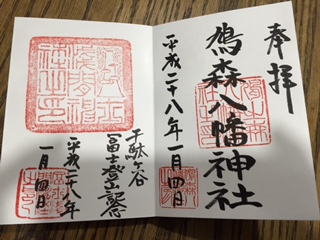 奉拝
鳩森八幡神社
平成二十八年一月四日
千駄ヶ谷
冨士登山記念
平成二十八年
一月四日